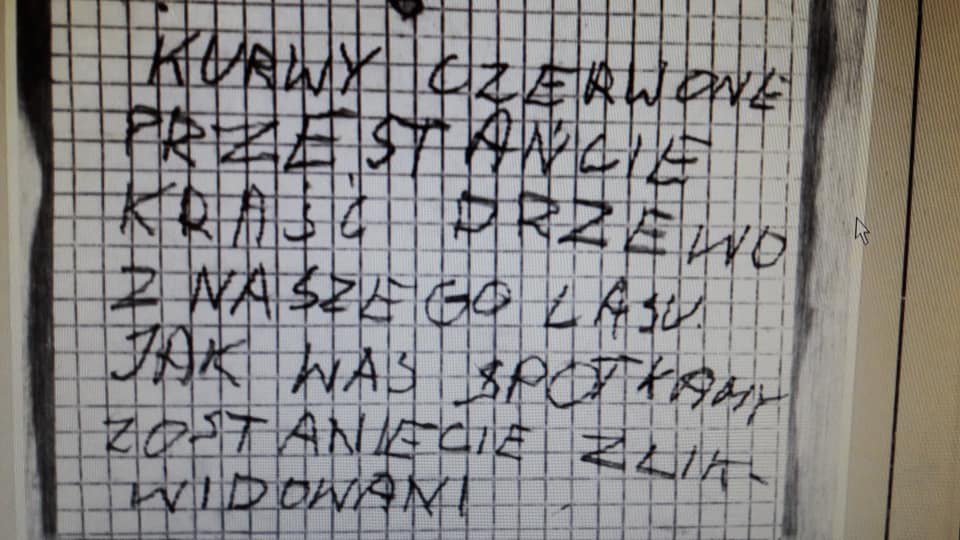 KURWY CZERWONE
PRZESTAŃCIE
KRAŚĆ DRZEWO
Z NASZEGO LASU.
JAK WAS SPOTKAMY
ZOSTANIECIE ZLIK-
WIDOWANI